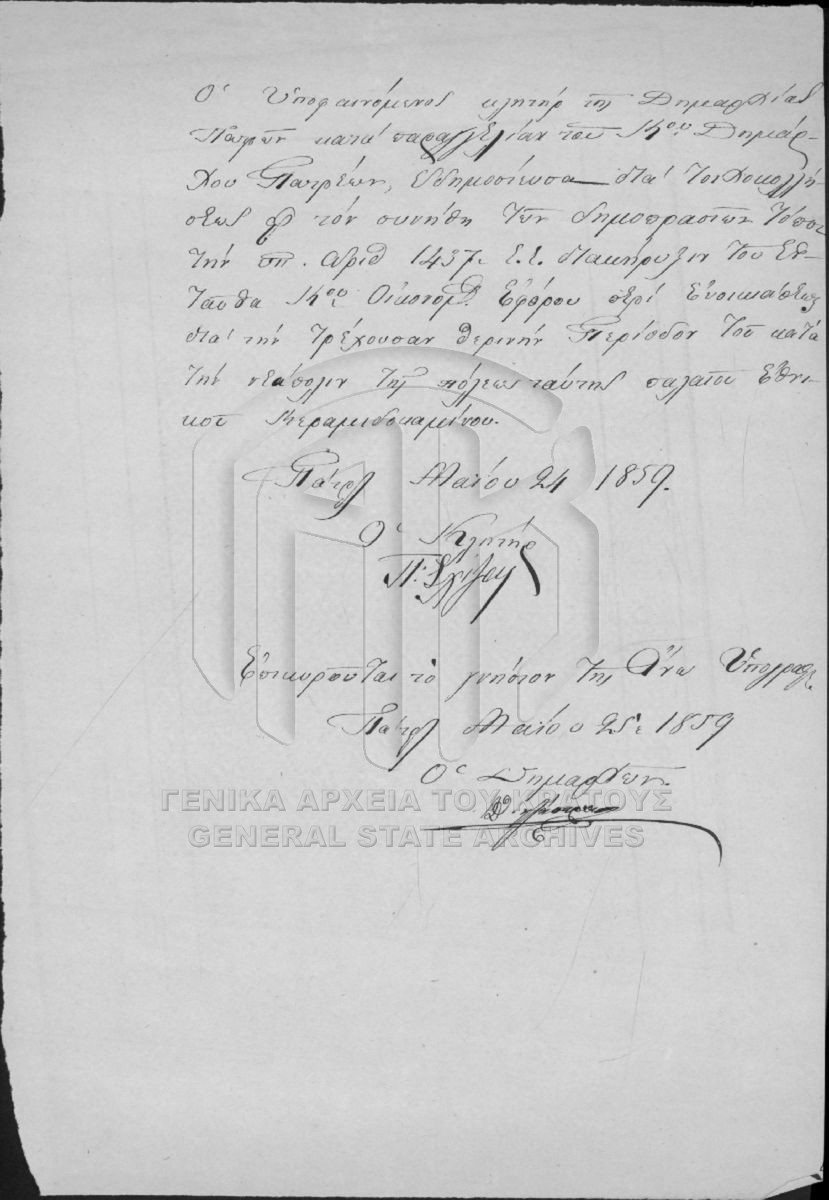 Ο Υποφαινόμενος κλητήρ της Δημαρχίας
Πατρών κατά παραγγελίαν του Κου Δημάρ-
χου Πατρέων, εδημοσίευσα διά τοιχοκολλή-
σεως τόν συνήθη των δημοπρασιών τόπον
την υπ. αριθ 1437 ε.ε. διακήρυξιν του εν-
ταύθα Κου Οικονομ. Εφόρου περί ενοικιάσεως
διά την τρέχουσαν θερινήν περίοδον του κατά
την νεάπολιν της πόλεως ταύτης παλαιού εθνι-
κού κεραμιδοκαμίνου.
Πάτραι Μαΐου 24 1859.
Ο Κλητήρ
Επικυρούται τό γνήσιον της άνω υπογραφής
Πάτραι Μαΐου 25 1859
Ο Δημαρχών.
ΓΕΝΙΚΑ ΑΡΧΕΙΑ ΤΟΥ ΚΡΑΤΟΥΣ
GENERAL STATE ARCHIVES